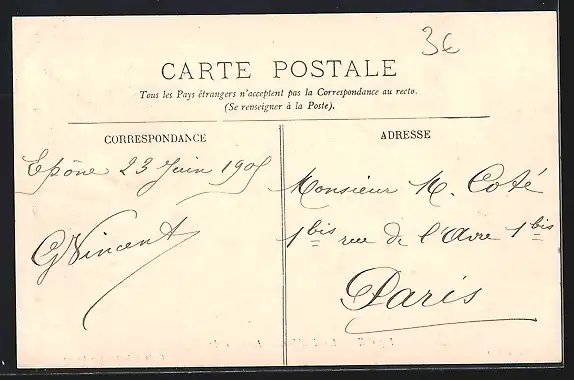 3€
CARTE POSTALE
Tous les Pays étrangers n'acceptent pas la Correspondance au recto.
(Se renseigner à la Poste).
CORRESPONDANCE
Epône 23 Juin 1905
G Vincent
ADRESSE
Monsieur M. Coté
1bis rue de l'Avre 1bis
Paris